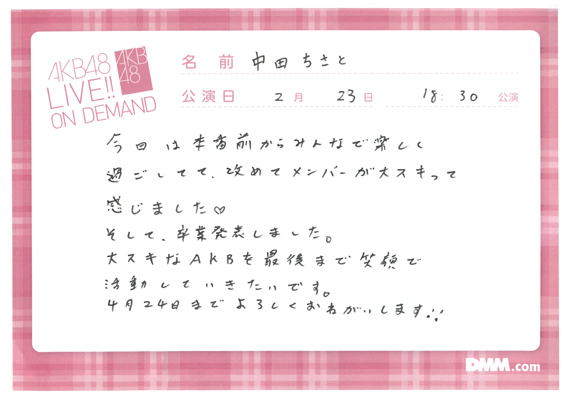 AKB48
LIVE!!
ON DEMAND
AKB
48
名前 中田ちさと
公演日 2月 23日 18:30 公演
今回は本番前からみんなで楽しく
過ごしてて、改めてメンバーが大スキって
感じました♡
そして、卒業発表しました。
大スキなAKBを最後まで笑顔で
活動していきたいです。
4月24日までよろしくおねがいします!!
DMM.com